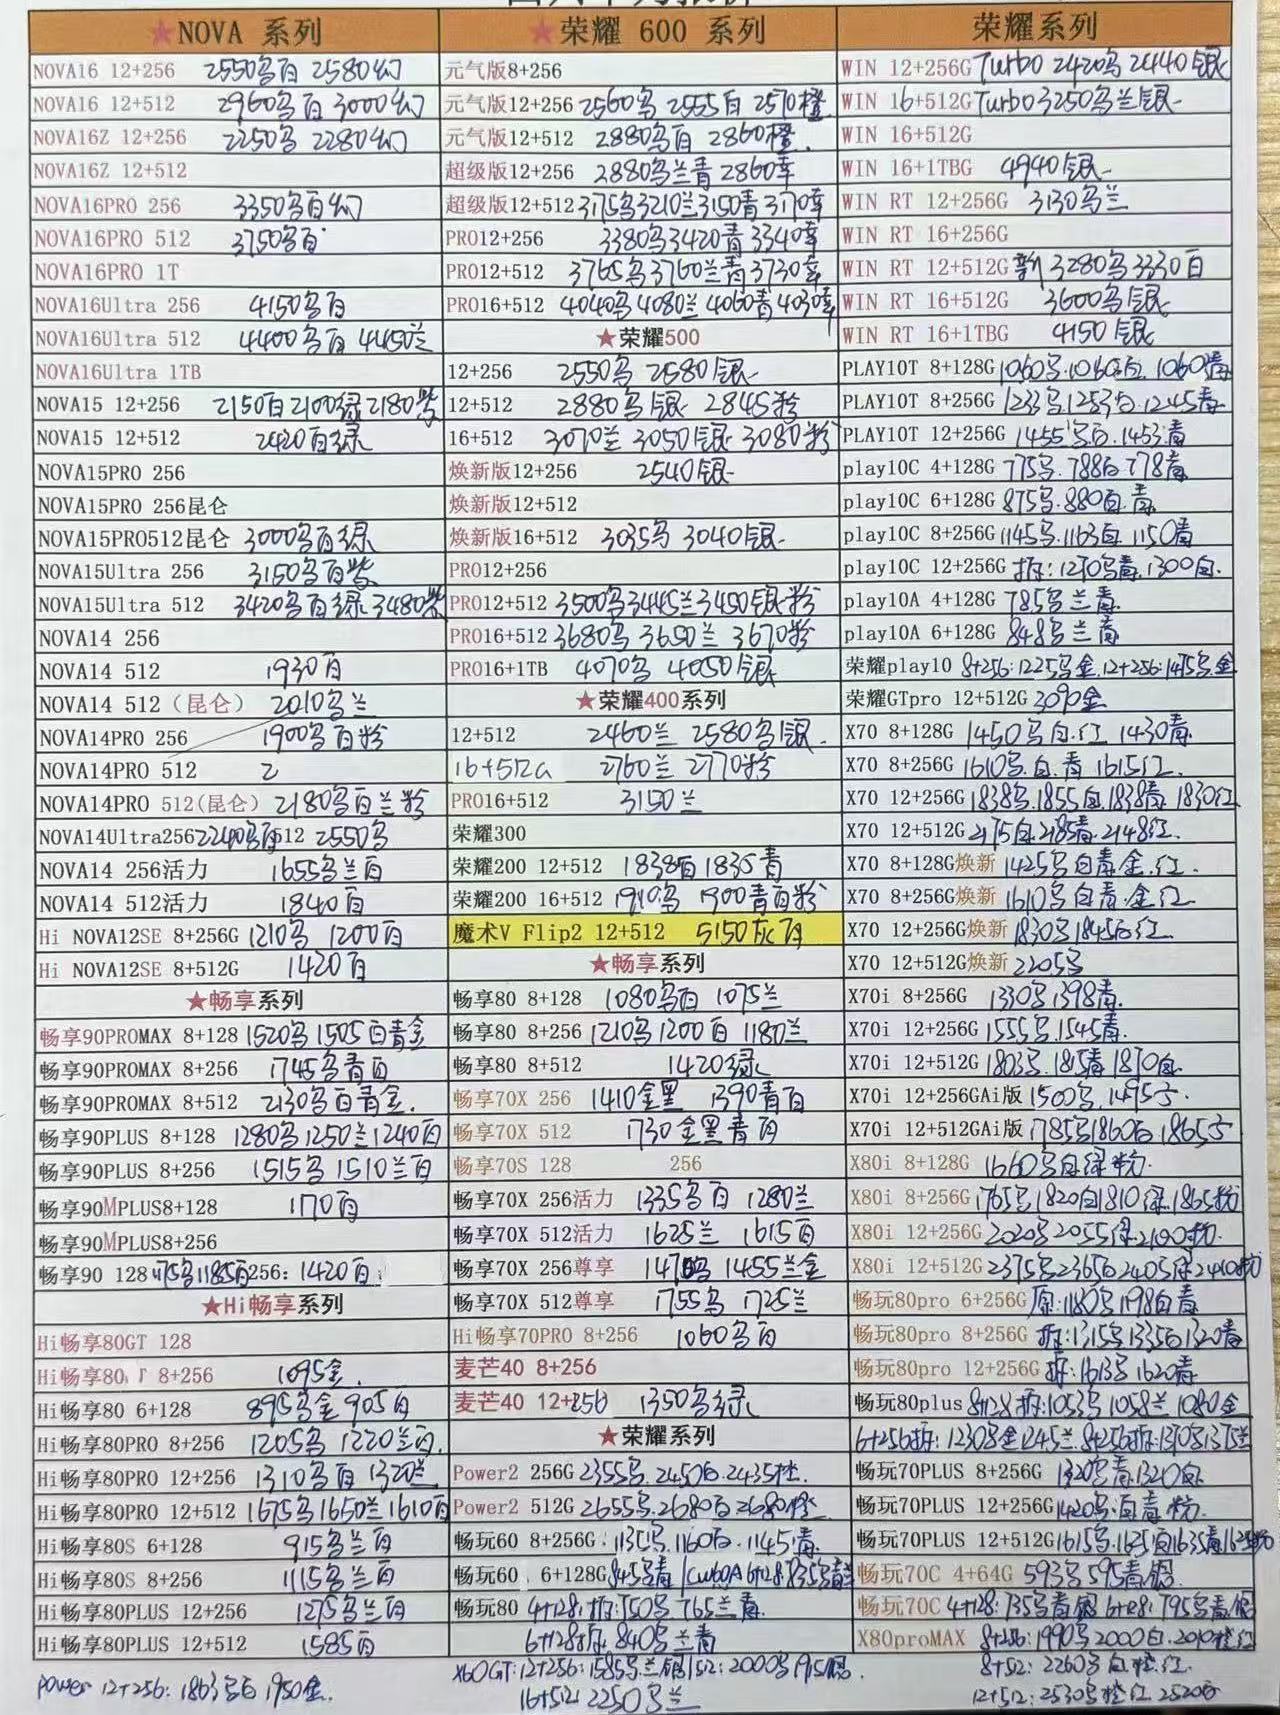 ★NOVA 系列
NOVA16 12+256 2550乌白 2580幻
NOVA16 12+512 2960乌白 3000幻
NOVA16Z 12+256 2250乌 2280幻
NOVA16Z 12+512
NOVA16PRO 256 3350乌白幻
NOVA16PRO 512 3750乌白
NOVA16PRO 1T
NOVA16Ultra 256 4150乌白
NOVA16Ultra 512 4400乌白 4450兰
NOVA16Ultra 1TB
NOVA15 12+256 2150白 2100绿 2180紫
NOVA15 12+512 2420白绿
NOVA15PRO 256
NOVA15PRO 256昆仑
NOVA15PRO512昆仑 3000乌白绿
NOVA15Ultra 256 3150乌白紫
NOVA15Ultra 512 3420乌白绿 3480紫
NOVA14 256
NOVA14 512 1930白
NOVA14 512（昆仑） 2010乌兰
NOVA14PRO 256 1900乌白粉
NOVA14PRO 512 2
NOVA14PRO 512(昆仑) 2180乌白兰粉
NOVA14Ultra256 2240乌白 512 2550乌
NOVA14 256活力 1655乌兰白
NOVA14 512活力 1840白
Hi NOVA12SE 8+256G 1210乌 1200白
Hi NOVA12SE 8+512G 1420白
★畅享系列
畅享90PROMAX 8+128 1520乌 1505白青金
畅享90PROMAX 8+256 1745乌青白
畅享90PROMAX 8+512 2130乌白青金.
畅享90PLUS 8+128 1280乌 1250兰 1240白
畅享90PLUS 8+256 1515乌 1510兰白
畅享90MPLUS8+128 1170白
畅享90MPLUS8+256
畅享90 128 1175乌 1185白 256: 1420白
★Hi畅享系列
Hi畅享80GT 128
Hi畅享80 8+256 1095金.
Hi畅享80 6+128 895乌金 905白
Hi畅享80PRO 8+256 1205乌 1220兰白.
Hi畅享80PRO 12+256 1310乌白 1320兰
Hi畅享80PRO 12+512 1675乌 1650兰 1610白
Hi畅享80S 6+128 915乌兰白
Hi畅享80S 8+256 1115乌兰白
Hi畅享80PLUS 12+256 1275乌兰白
Hi畅享80PLUS 12+512 1585白
power 12+256: 1863乌白 1950金.
★荣耀 600 系列
元气版8+256
元气版12+256 2560乌 2555白 2570橙
元气版12+512 2880乌白 2860橙.
超级版12+256 2880乌兰青 2860幸
超级版12+512 3175乌 3210兰 3150青 3170幸
PRO12+256 3380乌 3420青 3340幸
PRO12+512 3765乌 3760兰青 3730幸
PRO16+512 4040乌 4080兰 4060青 4030幸
★荣耀500
12+256 2550乌 2580银
12+512 2880乌银 2845粉
16+512 3070兰 3050银 3080粉
焕新版12+256 2540银
焕新版12+512
焕新版16+512 3035乌 3040银
PRO12+256
PRO12+512 3500乌 3445兰 3450银粉
PRO16+512 3680乌 3650兰 3670粉
PRO16+1TB 4070乌 4050银
★荣耀400系列
12+512 2460兰 2580乌银.
16+512G 2760兰 2770粉
PRO16+512 3150兰
荣耀300
荣耀200 12+512 1838白 1835青
荣耀200 16+512 1910乌 1900青白粉
魔术V Flip2 12+512 5150灰白
★畅享系列
畅享80 8+128 1080乌白 1075兰
畅享80 8+256 1210乌 1200白 1180兰
畅享80 8+512 1420绿
畅享70X 256 1410金黑 1390青白
畅享70X 512 1730金黑青白
畅享70S 128 256
畅享70X 256活力 1335乌白 1280兰
畅享70X 512活力 1625兰 1615白
畅享70X 256尊享 乌 1455兰金
畅享70X 512尊享 1755乌 1725兰
Hi畅享70PRO 8+256 1060乌白
麦芒40 8+256
麦芒40 12+256 1350乌绿
★荣耀系列
Power2 256G 2355乌.2450白.2435橙.
Power2 512G 2655乌.2680白 2680橙
畅玩60 8+256G: 1135乌.1160白.1145青.
畅玩60 6+128G 845乌青 6+128
畅玩80 4+128:拆:750乌 765兰青.
6+128拆:840乌兰青
X60GT:12+256:1585乌兰银 512:2000乌 1915银.
16+512 2250乌兰
荣耀系列
WIN 12+256G Turbo 2420乌 2440银
WIN 16+512G Turbo 3250乌兰银
WIN 16+512G
WIN 16+1TBG 4940银
WIN RT 12+256G 3130乌兰
WIN RT 16+256G
WIN RT 12+512G 新 3280乌 3330白
WIN RT 16+512G 3600乌银
WIN RT 16+1TBG 4150银
PLAY10T 8+128G 1060乌.1060白.1060青
PLAY10T 8+256G 1233乌 1253白.1245青
PLAY10T 12+256G 1455乌白.1453青
play10C 4+128G 775乌.788白 778青
play10C 6+128G 875乌.880白.青
play10C 8+256G 1145乌.1163白.1150青
play10C 12+256G 拆:1270乌青.1300白.
play10A 4+128G 785乌兰青.
play10A 6+128G 848乌兰青
荣耀play10 8+256:1225乌金.12+256:1475乌.金
荣耀GTpro 12+512G 3090金
X70 8+128G 1450乌白.红 1430青.
X70 8+256G 1610乌.白.青 1615红.
X70 12+256G 1838乌.1855白.1838青 1830红
X70 12+512G 2175白.2185青.2148红.
X70 8+128G焕新 1425乌白青金.红
X70 8+256G焕新 1610乌白青.金红
X70 12+256G焕新 1830乌 1845白红.
X70 12+512G焕新 2205乌
X70i 8+256G 1330乌 1398青.
X70i 12+256G 1555乌.1545青.
X70i 12+512G 1803乌.1815青 1870白
X70i 12+256GAi版 1500乌.1495
X70i 12+512GAi版 1785乌 1860白 1865
X80i 8+128G 1660乌白绿粉.
X80i 8+256G 1765乌 1820白 1810绿.1865粉
X80i 12+256G 2020乌 2055绿.2190粉.
X80i 12+512G 2375乌 2365白 2405绿 2410粉
畅玩80pro 6+256G 原:1180乌 1198白青
畅玩80pro 8+256G 拆:1315乌 1335白 1320青
畅玩80pro 12+256G 拆:1613乌 1620青
畅玩80plus 8+128拆:1053乌 1058兰 1080金
6+256拆:1230乌金 1245兰.8+256拆:1370乌 1375兰
畅玩70PLUS 8+256G 1320乌青.1320白
畅玩70PLUS 12+256G 1420乌.白青.粉
畅玩70PLUS 12+512G 1615乌.1625白 1635青
畅玩70C 4+64G 593乌 595青.银
畅玩70C 4+128:735乌青银 6+128:795乌青.银
X80proMAX 8+256:1990乌 2000白.2010橙红
8+512: 2260乌白橙.红.
12+512:2530乌橙红 2520白